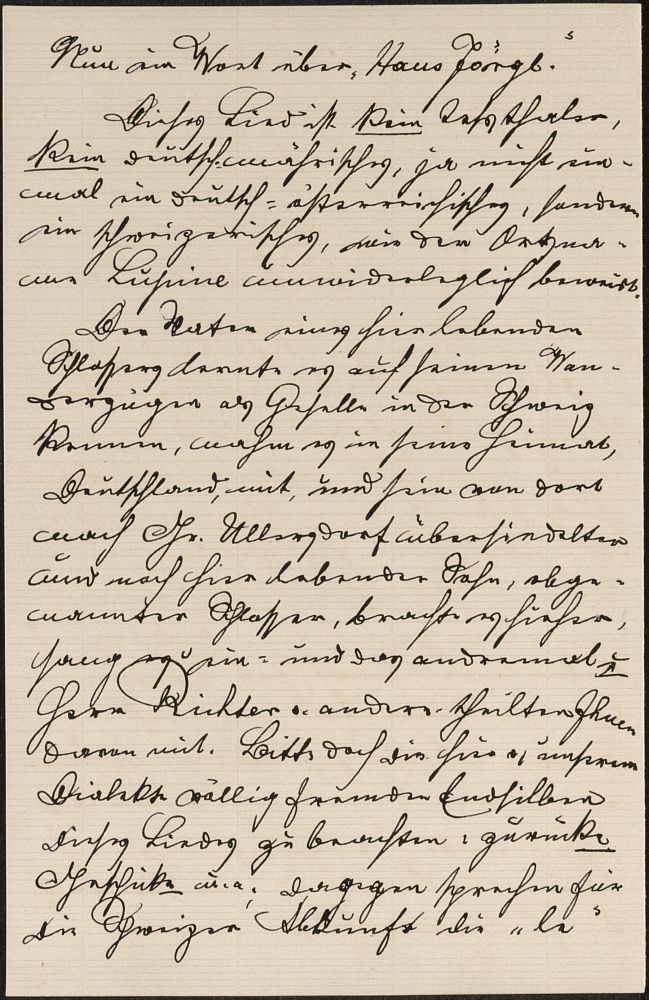 Nun ein Wort über „Hans Jörgl."
Dieses Lied ist kein Tessthaler,
kein deutsch-mährisches, ja nicht ein-
mal ein deutsch-österreichisches, sondern
ein schweizerisches, wie der Ortsna-
me Luzine unwiderleglich beweist.
Der Vater eines hier lebenden
Schlossers lernte es auf seinen Wan-
derzügen als Geselle in der Schweiz
kennen, nahm es in seine Heimat,
Deutschland, mit, und sein von dort
nach Gr. Ullersdorf übersiedelter
und noch hier lebender Sohn, obge-
nannter Schlosser, brachte es hieher,
sang es ein- und das anderemal u
Herr Richter o. andere theilten Ihnen
davon mit. Bitte doch die hier u unserem
Dialekte völlig fremden Endsilben
dieses Liedes zu beachten: zurücke
Geschicke u.a. dagegen sprechen für
die Schweizer Abkunft die „le"